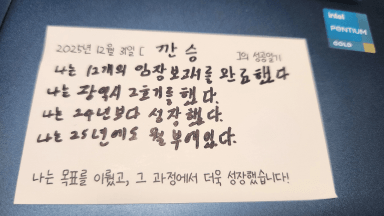 2025년 12월 31일 [ 깐승 ]의 성공일기
나는 12개의 임장보고서를 완료했다
나는 광역시 2호기를 했다.
나는 24년보다 성장했다.
나는 25년에도 월부에있다.
나는 목표를 이뤘고, 그 과정에서 더욱 성장했습니다!
intel
PENTIUM
GOLD